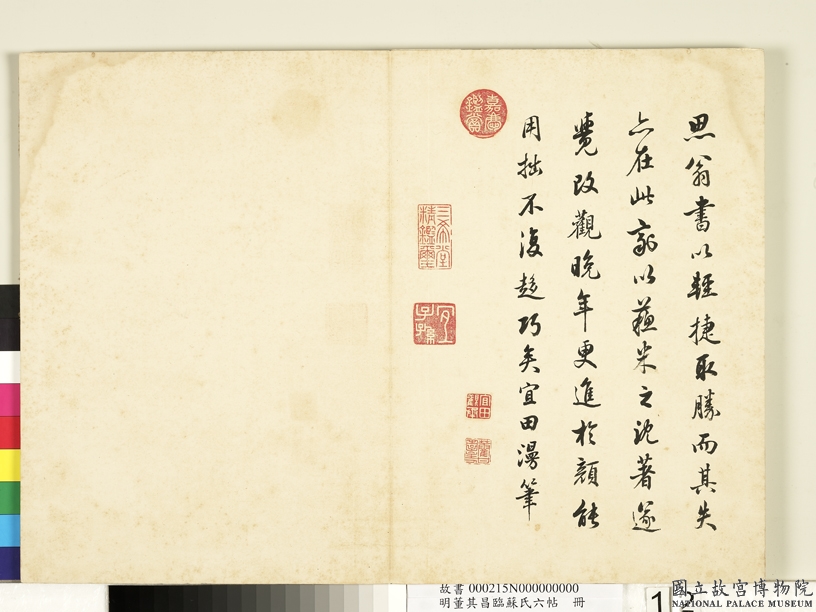 思翁書以輕捷取勝而其失
亦在此敵以蘇米之沈著遂
覺改觀晚年更進於顏能
用拙不復趍巧矣宜田漫筆
嘉慶鑑賞
三希堂精鑑璽
宜子孫
宜田
故書 000215N000000000
明董其昌臨蘇氏六帖 冊
國立故宮博物院
NATIONAL PALACE MUSEUM